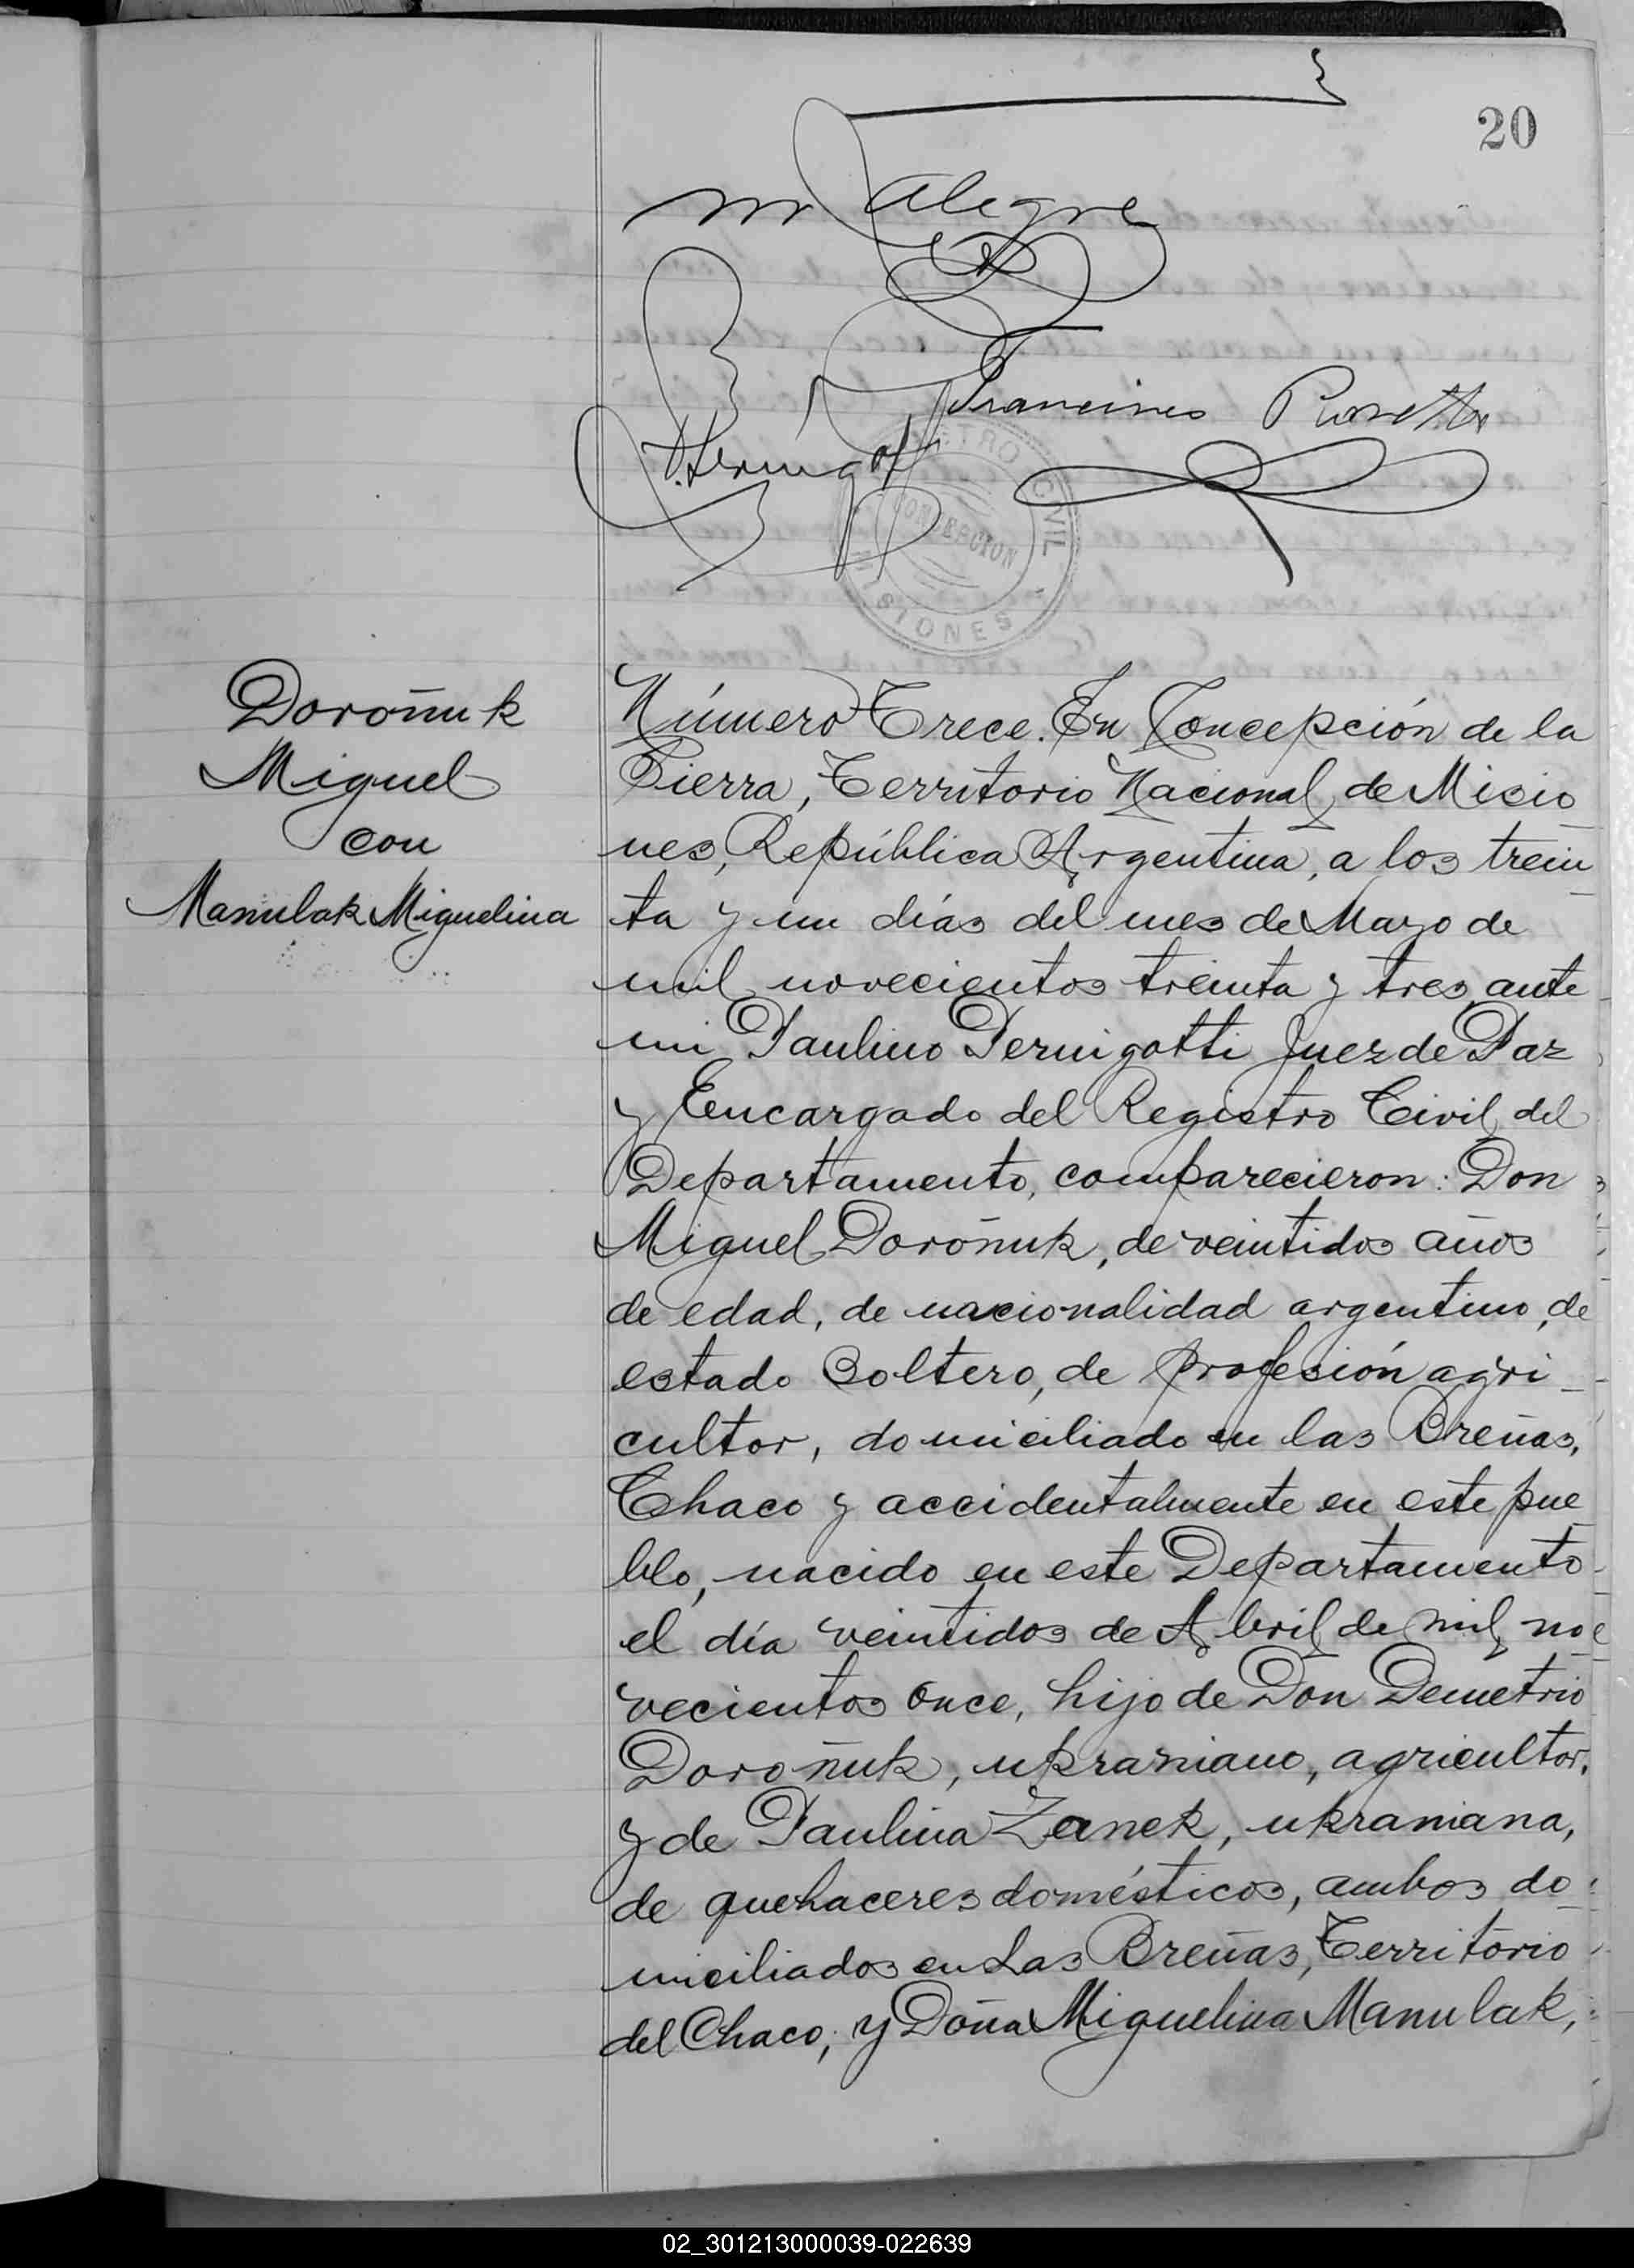 20
Alegre
Francisco
P. Pernigotti
REGISTRO CIVIL
CONCEPCION
MISIONES
Doroñuk
Miguel
con
Manulak Miguelina
Número Trece. En Concepción de la
Sierra, Territorio Nacional de Misio
nes, República Argentina, a los trein
ta y un días del mes de Mayo de
mil novecientos treinta y tres, ante
mi Paulino Pernigotti Juez de Paz
y Encargado del Registro Civil del
Departamento, comparecieron: Don
Miguel Doroñuk, de veintidos años
de edad, de nacionalidad argentino, de
estado soltero, de profesión agri
cultor, domiciliado en las Breñas,
Chaco y accidentalmente en este pue
blo, nacido en este Departamento
el día veintidos de Abril de mil no
vecientos once, hijo de Don Demetrio
Doroñuk, ukraniano, agricultor,
y de Paulina Zanek, ukraniana,
de quehaceres domésticos, ambos do
miciliados en Las Breñas, Territorio
del Chaco; y Doña Miguelina Manulak,
02_301213000039-022639